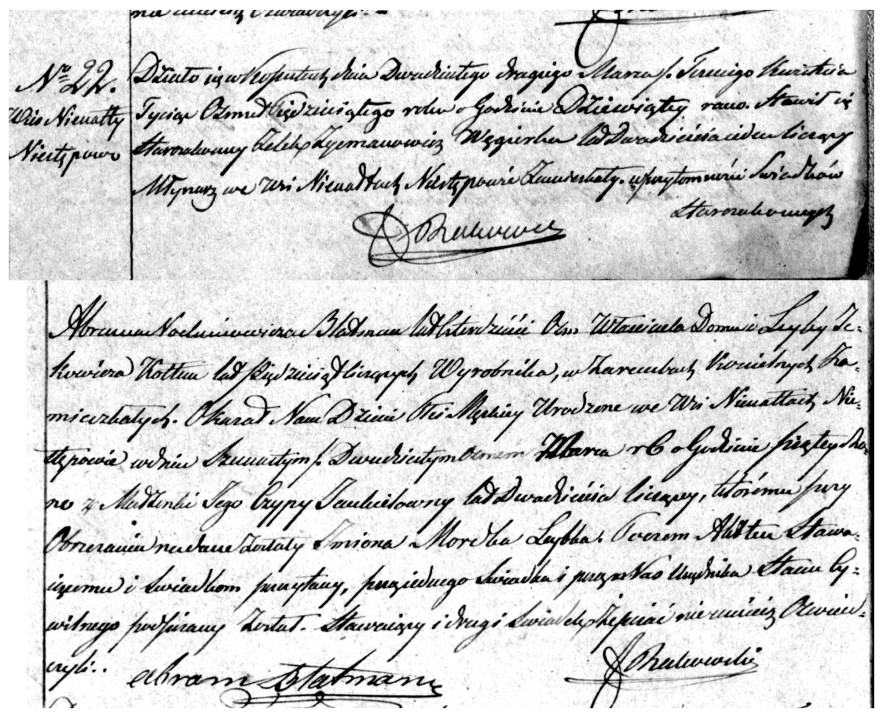 No 22.
Wieś Nienałty
Niestępowo
Działo się w dnia Dwudziestego drugiego Marca /. Trzeciego Kwietnia
Tysiąc Ośmset Pięćdziesiątego roku o Godzinie Dziewiątey rano. Stawił się
Starozakonny Zelek Zysmanowicz Węgierka lat Dwadzieścia ieden liczący
Młynarz we Wsi Nienałtach Niestępowie Zamieszkały. w przytomności Świadków
Starozakonnych
Abrama Blatman lat Czterdzieści Ośm Właściciela Domu i Leyby Ic-
kowicza Kołtun lat Pięćdziesiąt liczących Wyrobnika, w Zarembach Kościelnych Za-
mieszkałych. Okazał Nam Dziecie Płci Męskiey Urodzone we Wsi Nienałtach Nie-
stępowie w dniu Szesnastym /. Dwudziestym ósmem Marca rb o Godzinie piątey Ra-
no z Małżonki Jego Czypy lat Dwadzieścia liczącey, któremu przy
Obrzezaniu nadane zostały Imiona Mordka Leybka. Poczem Akt ten Stawa-
iącemu i świadkom przeczytany, przez iednego Świadka i przez Nas Urzędnika Stanu Cy-
wilnego podpisany został. Stawaiący i drugi świadek iż pisać nie umieią Oświad-
czyli:.
abram Blatman